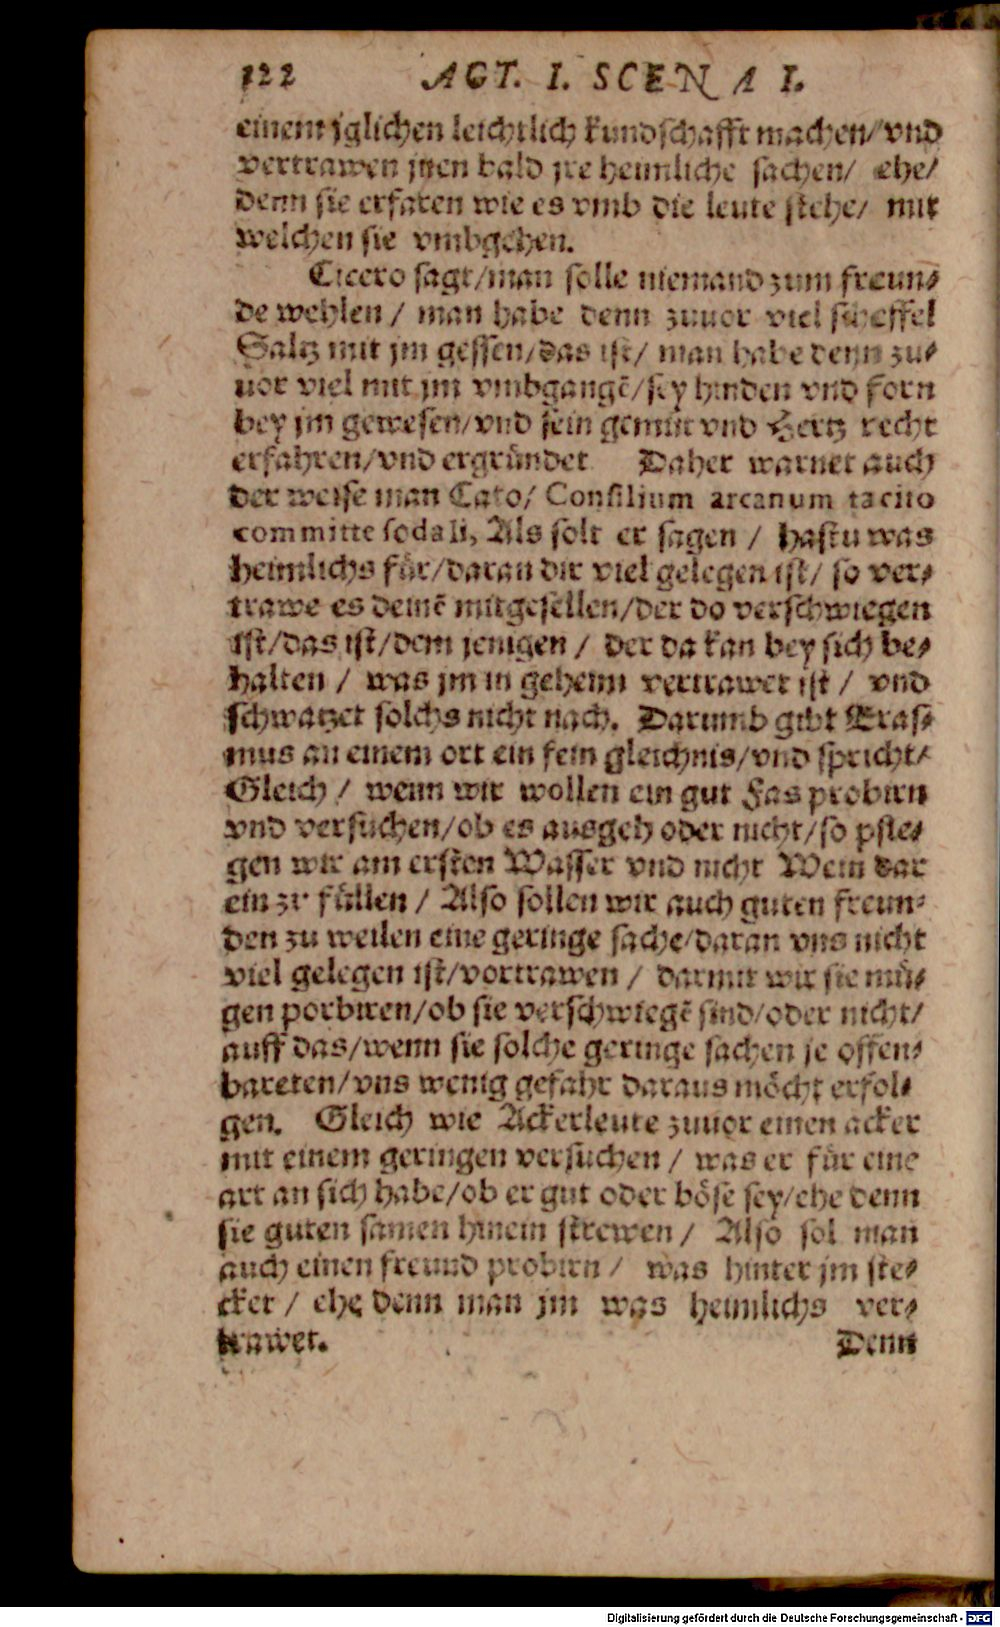 122 ACT. I. SCENA I.
einem jglichen leichtlich kundschafft machen/ vnd
vertrawen jnen bald jre heimliche sachen/ ehe/
denn sie erfaren wie es vmb die leute stehe/ mit
welchen sie vmbgehen.
Cicero sagt/man solle niemand zum freun-
de wehlen / man habe denn zuuor viel scheffel
Saltz mit jm gessen/das ist/ man habe denn zu-
uor viel mit jm vmbgangē/sey hinden vnd forn
bey jm gewesen/vnd sein gemüt vnd Hertz recht
erfahren/vnd ergründet Daher warnet auch
der weise man Cato/ Consilium arcanum tacito
committe sodali, Als solt er sagen / hastu was
heimlichs für/daran dir viel gelegen ist/ so ver-
trawe es deinē mitgesellen/der do verschwiegen
ist/das ist/dem jenigen / der da kan bey sich be-
halten / was jm in geheim vertrawet ist / vnd
schwatzet solchs nicht nach. Darumb gibt Eras-
mus an einem ort ein fein gleichnis/vnd spricht/
Gleich / wenn wir wollen ein gut Fas probirn
vnd versuchen/ob es ausgeh oder nicht/so pfle-
gen wir am ersten Wasser vnd nicht Wein dar
ein zu füllen / Also sollen wir auch guten freun-
den zu weilen eine geringe sache/daran vns nicht
viel gelegen ist/vortrawen / darmit wir sie mü-
gen porbiren/ob sie verschwiegē sind/oder nicht/
auff das/wenn sie solche geringe sachen je offen-
bareten/vns wenig gefahr daraus möcht erfol-
gen. Gleich wie Ackerleute zuuor einen acker
mit einem geringen versuchen / was er für eine
art an sich habe/ob er gut oder böse sey/ehe denn
sie guten samen hinein strewen / Also sol man
auch einen freund probirn / was hinter jm ste-
cket / ehe denn man jm was heimlichs ver-
trawet. Denn
Digitalisierung gefördert durch die Deutsche Forschungsgemeinschaft - DFG